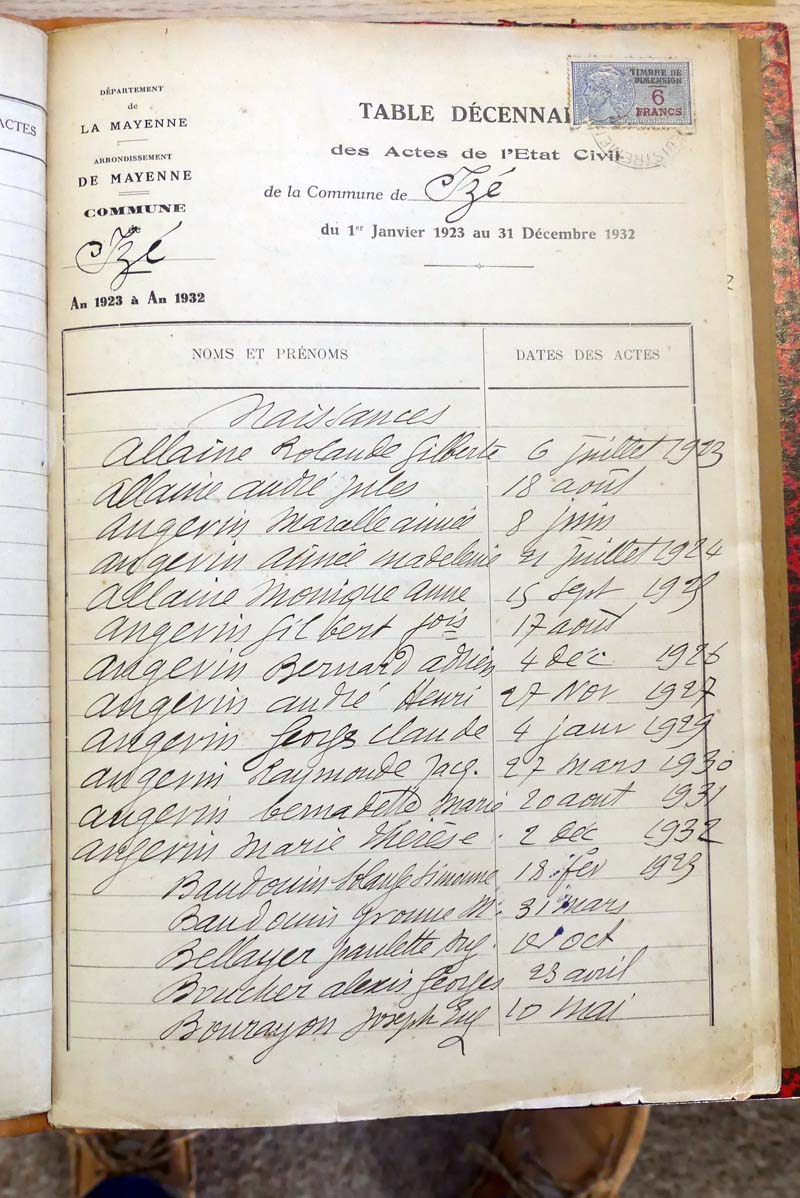 ACTES
DÉPARTEMENT
de
LA MAYENNE
ARRONDISSEMENT
DE MAYENNE
COMMUNE
de
Izé
An 1923 à An 1932
TIMBRE DE
DIMENSION
6
FRANCS
TABLE DÉCENNA
des Actes de l'Etat Civil
de la Commune de Izé
du 1er Janvier 1923 au 31 Décembre 1932
NOMS ET PRÉNOMS DATES DES ACTES
Naissances
Allaine Rolande Gilberte 6 juillet 1923
Allaine andré Jules 18 août
Angevin Marcelle aimée 8 juin
angevin aimée madeleine 21 juillet 1924
Allaine Monique Anne 15 Sept 1925
Angevin Gilbert 17 août
Angevin Bernard adrien 4 dec 1926
angevin andré Henri 27 Nov 1927
angevin Georges Claude 4 janv 1929
angevin Raymonde Jacq. 27 mars 1930
angevin bernadette Marie 20 aout 1931
angevin Marie Thérèse 2 dec 1932
Baudouin Solange Simonne 18 fev 1923
Baudouin Yvonne M. 31 mars
Bellayer paulette oct
Boucher alexis Georges 23 avril
Bourayon Joseph Eug 10 mai